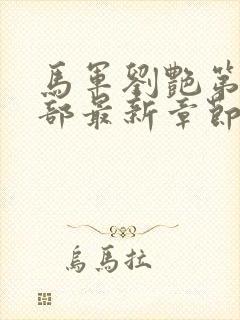 馬軍劉艷第
部最新章節
烏馬拉